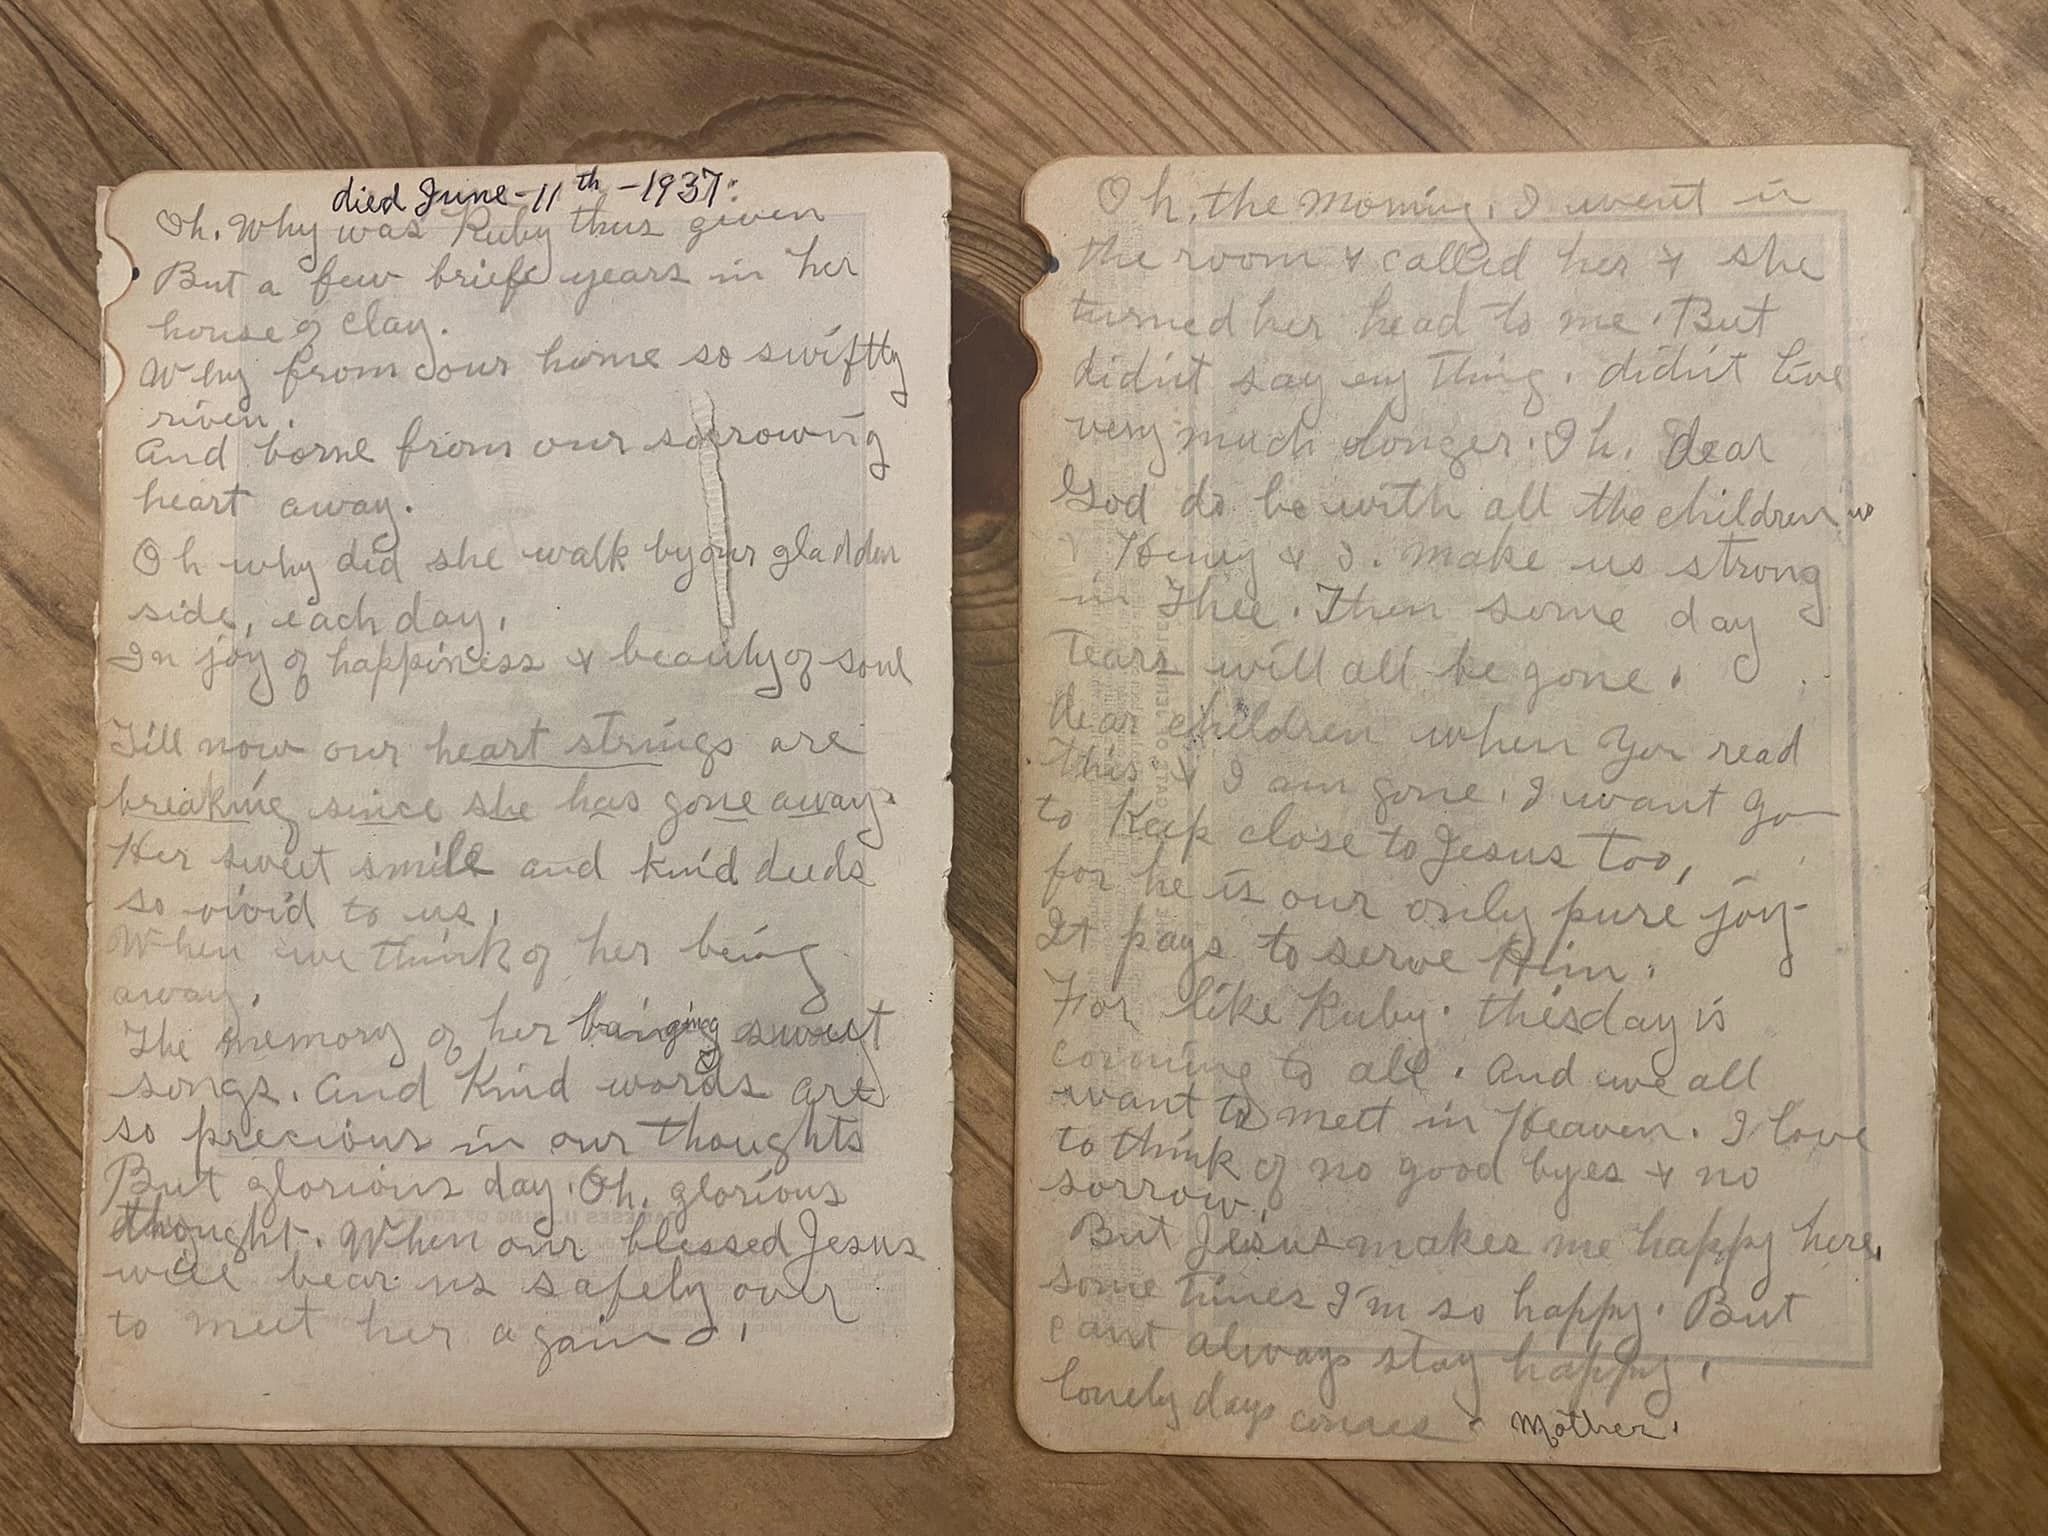 died June - 11th - 1937.
Oh. Why was Ruby thus given
But a few brief years in her
house of clay.
Why from our home so swiftly
riven.
And borne from our sorrowing
heart away.
Oh why did she walk by our gladden
side, each day,
In joy of happiness & beauty of soul
Till now our heart strings are
breaking since she has gone away.
Her sweet smile and kind deeds
so vivid to us,
When we think of her being
away.
The memory of her sweet
songs. And kind words are
so precious in our thoughts
But glorious day. Oh, glorious
thought. When our blessed Jesus
will bear us safely over
to meet her again.
Oh, the morning, I went in
the room & called her & she
turned her head to me. But
didn't say eny thing. didn't live
very much longer. Oh. Dear
God do be with all the children
& Henry & I. Make us strong
in Thee. Then some day
Tears will all be gone.
dear children when you read
This & I am gone, I want you
to Keep close to Jesus too,
for he is our only pure joy
It pays to serve Him.
For like Ruby. this day is
comeing to all. And we all
want to meet in Heaven. I love
to think of no good byes & no
sorrow.
But Jesus makes me happy here,
some times I'm so happy. But
cant always stay happy.
lonely days comes. Mother.